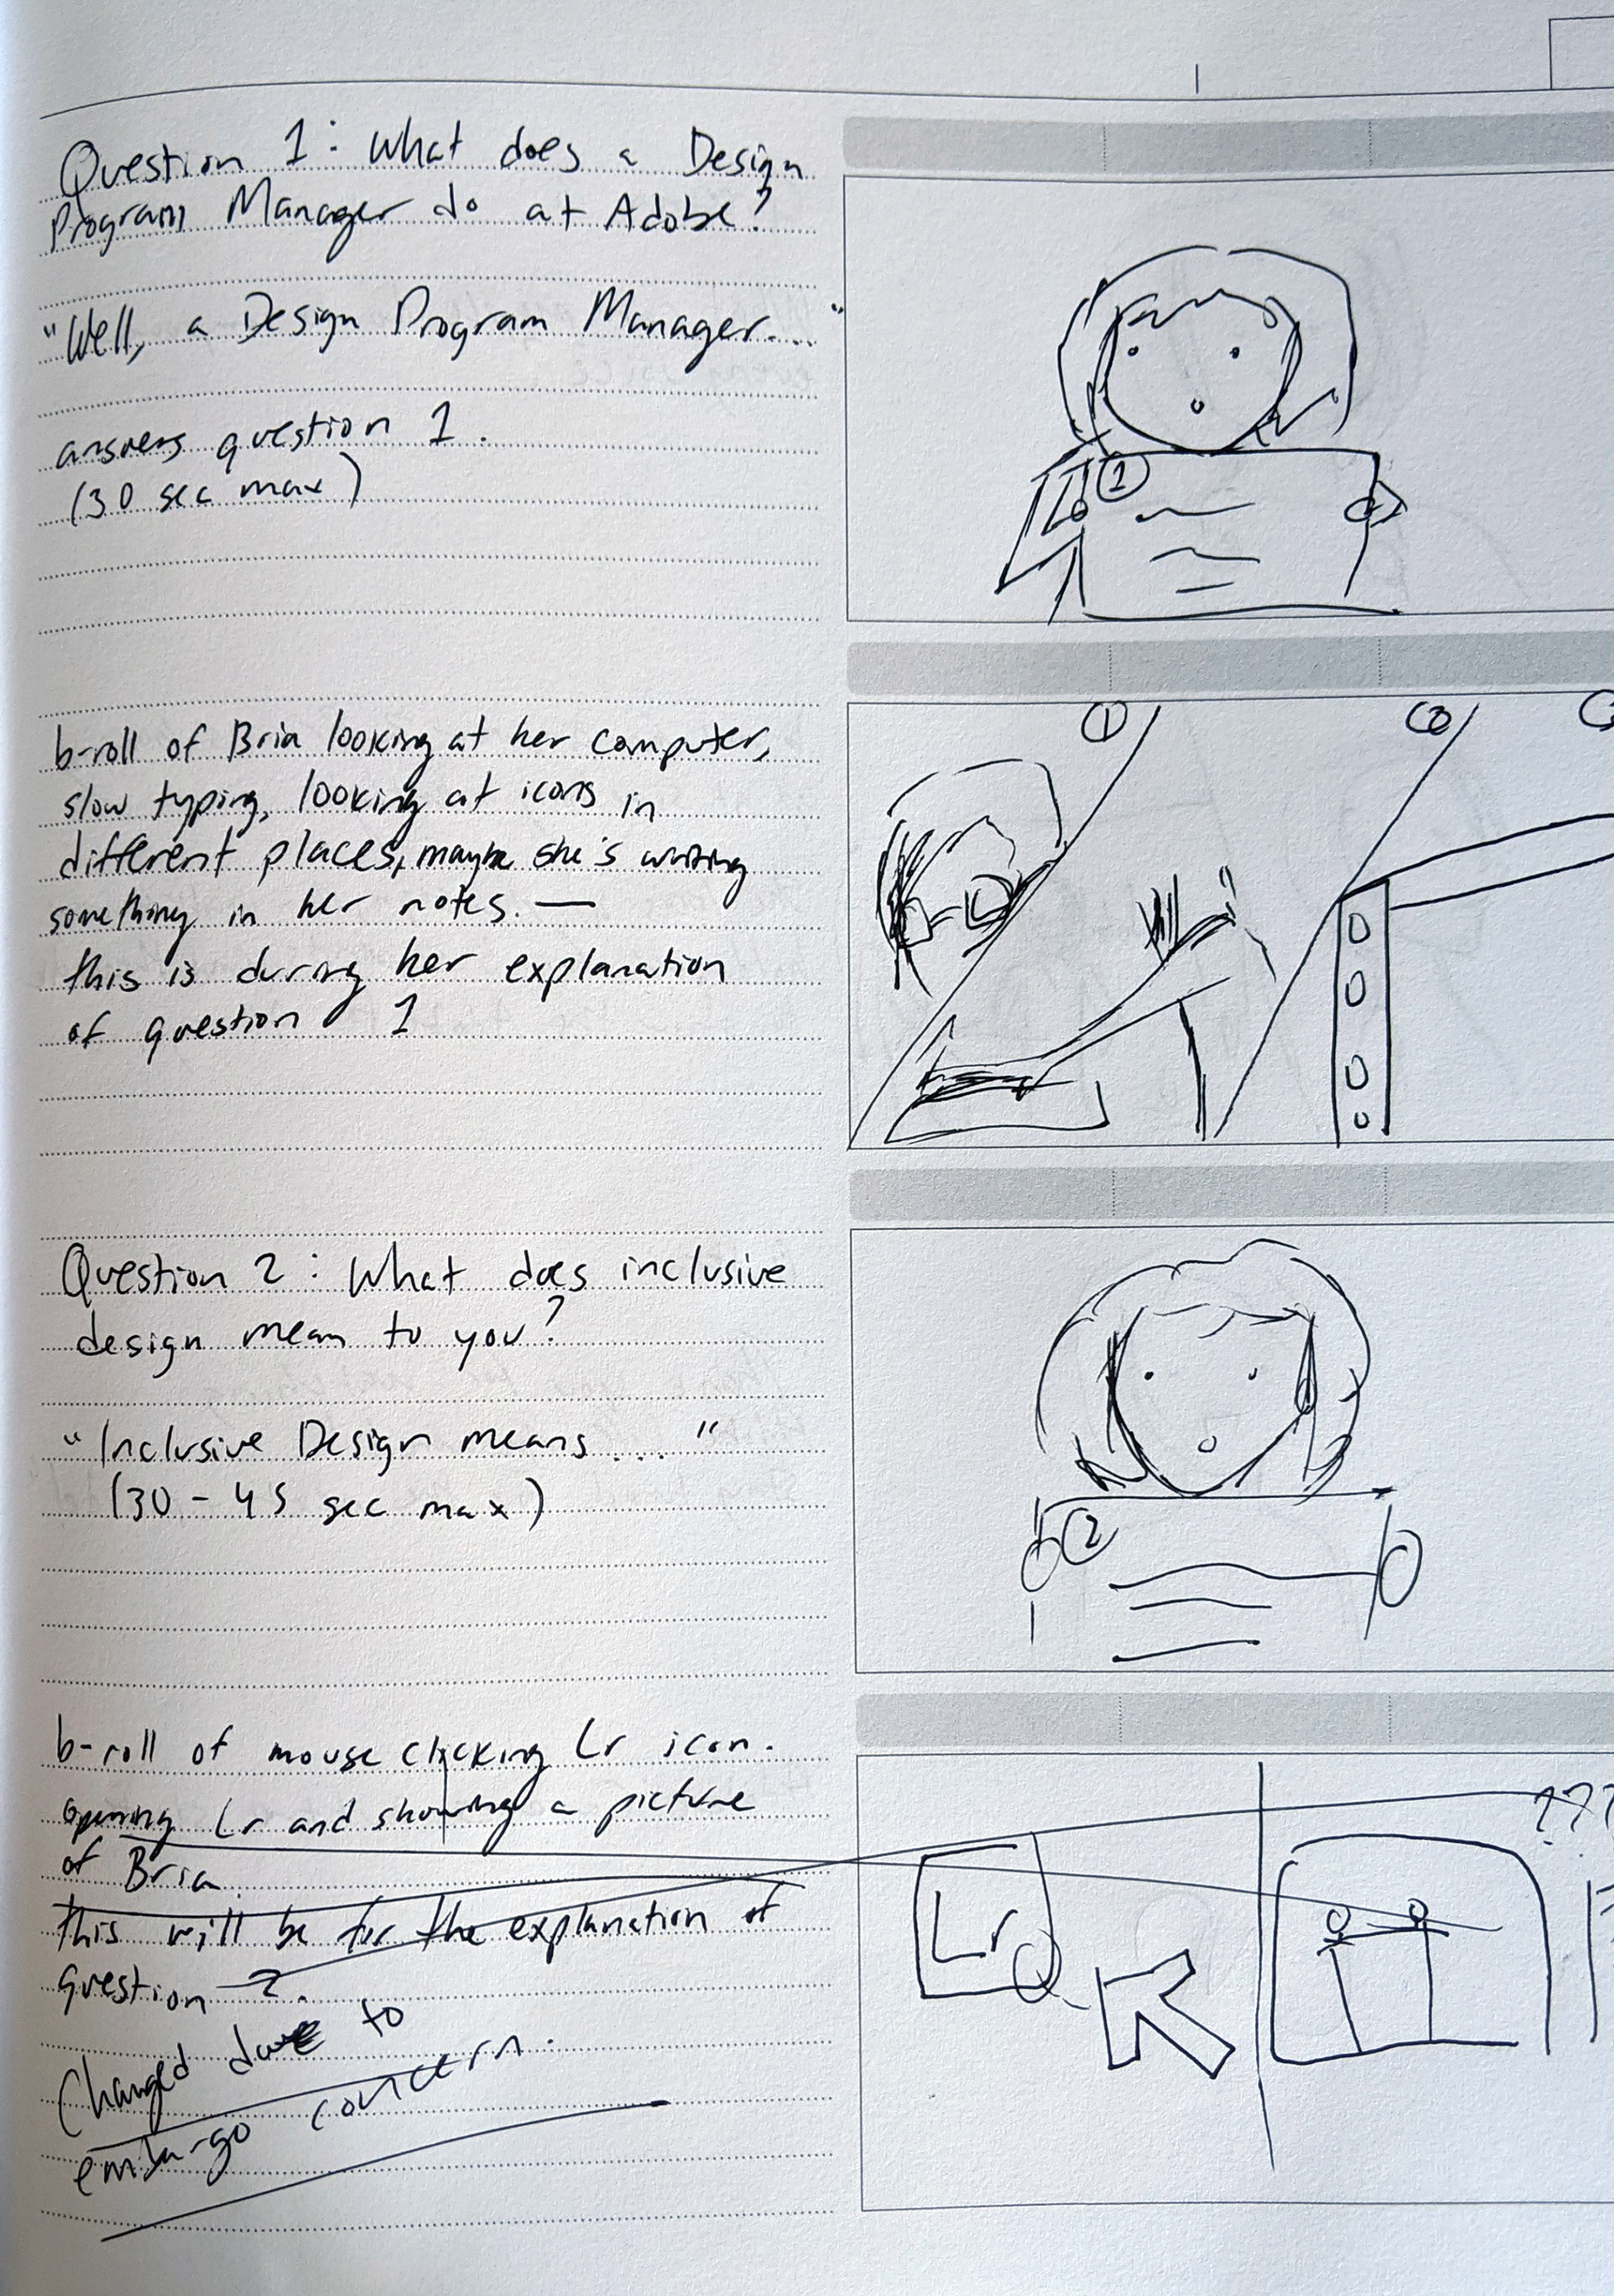 Question 1: What does a Design
Program Manager do at Adobe?
"Well, a Design Program Manager...."
answers question 1.
(30 sec max)
1
b-roll of Bria looking at her computer,
slow typing, looking at icons in
different places, maybe she's writing
something in her notes. —
this is during her explanation
of question 1
1
2
Question 2: What does inclusive
design mean to you?
"Inclusive Design means...."
(30-45 sec max)
2
b-roll of mouse clicking Lr icon.
opening Lr and showing a picture
of Bria.
this will be for the explanation of
question 2.
Changed due to
embargo concern.
Lr
???